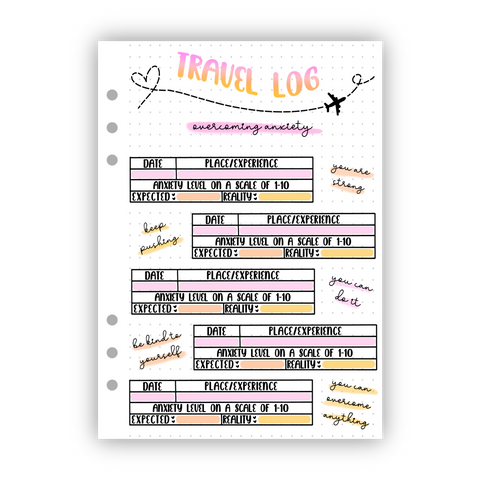 TRAVEL LOG
overcoming anxiety
DATE PLACE/EXPERIENCE
ANXIETY LEVEL ON A SCALE OF 1-10
EXPECTED: REALITY:
you are
strong
DATE PLACE/EXPERIENCE
ANXIETY LEVEL ON A SCALE OF 1-10
EXPECTED: REALITY:
keep
pushing
DATE PLACE/EXPERIENCE
ANXIETY LEVEL ON A SCALE OF 1-10
EXPECTED: REALITY:
you can
do it
DATE PLACE/EXPERIENCE
ANXIETY LEVEL ON A SCALE OF 1-10
EXPECTED: REALITY:
be kind to
yourself
DATE PLACE/EXPERIENCE
ANXIETY LEVEL ON A SCALE OF 1-10
EXPECTED: REALITY:
you can
overcome
anything